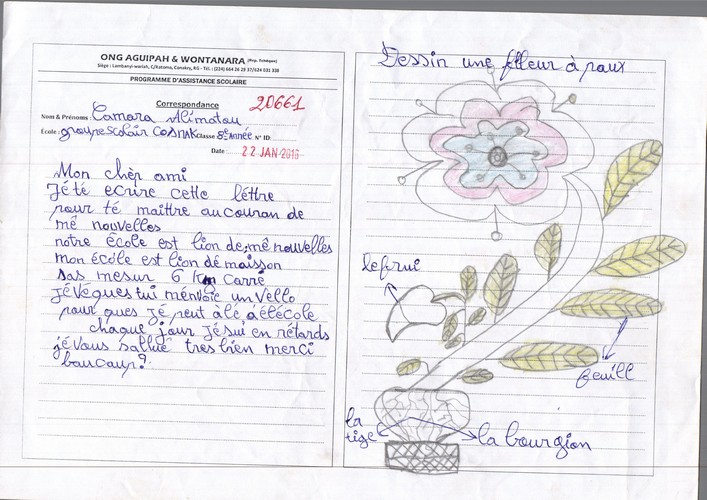 ONG AGUIPAH & WONTANARA (Rép. Tchèque)
Siège : Lambanyi-wariah, C/Ratoma, Conakry, RG - Tél.: (224) 664 26 29 37/624 031 338
PROGRAMME D'ASSISTANCE SCOLAIRE
Correspondance 20661
Nom & Prénoms : Camara Alimatou
Ecole : groupe scolair COSNAK Classe 8e Année N° ID:
Date 22 JAN 2016
Mon chèr ami
Jété ecrire cette léttre
pour té maittre aucouran de
mê nouvelles
notre école est lion de mê nouvelles
mon école est lion dé maison
sas mesur 6 km carré
Jévéques tui ménvoie un vello
pour ques jé peut âlé à élécole
chaque jour Jésui en rétards
jé vous sallué tres bien merci
baucaup?
Dessin une fleur à paux
le frui
feuill
la
tige
la bourgion